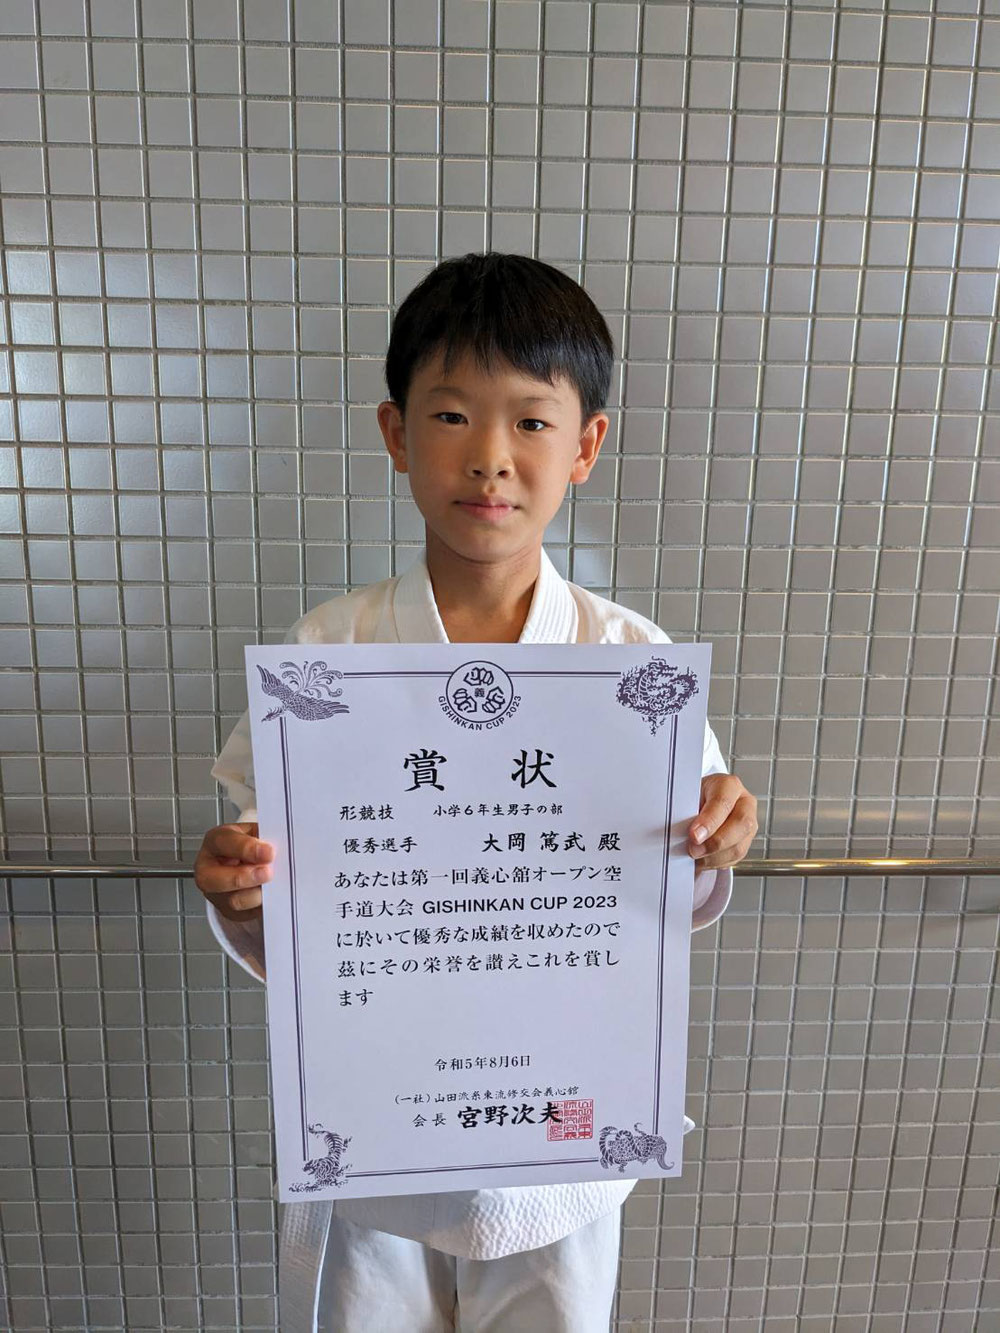 義
GISHINKAN CUP 2023
賞 状
形競技 小学6年生男子の部
優秀選手 大岡 篤武 殿
あなたは第一回義心舘オープン空
手道大会 GISHINKAN CUP 2023
に於いて優秀な成績を収めたので
茲にその栄誉を讃えこれを賞し
ます
令和5年8月6日
(一社)山田派糸東流修交会義心館
会長 宮野次夫